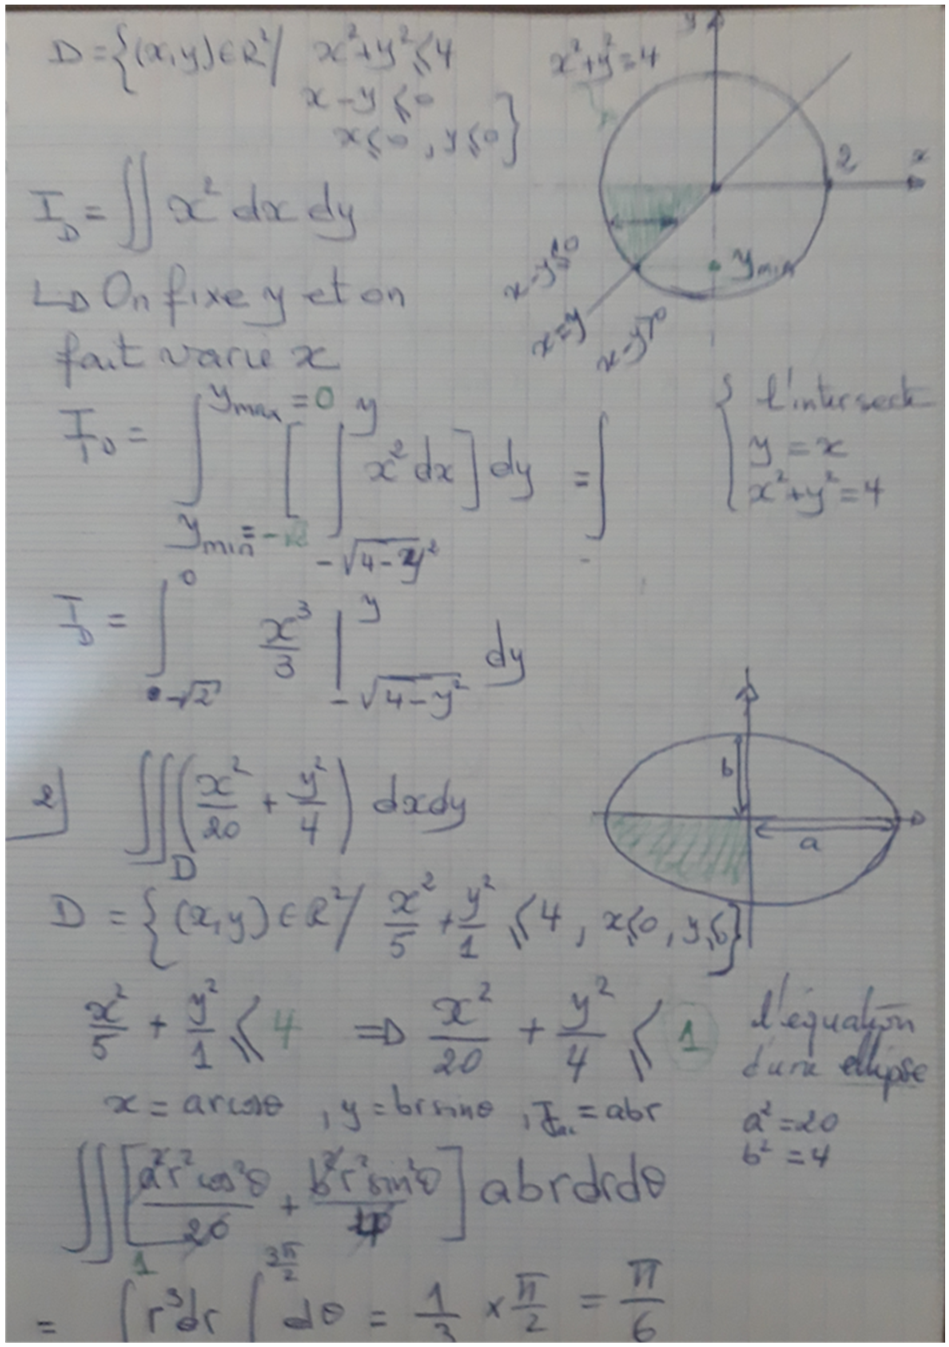 D = {(x,y) ∈ R² / x²+y² ≤ 4
x - y ≤ 0
x ≤ 0 , y ≤ 0}
x²+y²=4
y
x
2
y min
x-y≤0
x=y
x-y>0
I_D = ∬ x² dx dy
↳ On fixe y et on
fait varie x
I_D = ∫_{y min = -√2}^{y max = 0} [ ∫_{-√(4-y²)}^{y} x² dx ] dy = ∫
{ l'intersect
y = x
x²+y²=4
I_D = ∫_{-√2}^{0} x³/3 |_{-√(4-y²)}^{y} dy
b
a
2] ∬_D (x²/20 + y²/4) dxdy
D = {(x,y) ∈ R² / x²/5 + y²/1 ≤ 4 , x≤0, y≤0}
x²/5 + y²/1 ≤ 4 ⇒ x²/20 + y²/4 ≤ 1
l'équation
d'une ellipse
a² = 20
b² = 4
x = arcosθ , y = br sinθ , = abr
∬ [a²r²cos²θ/20 + b²r²sin²θ/4] abrdrdθ
= ∫^1 r³dr ∫^{3π/2} dθ = 1/3 × π/2 = π/6